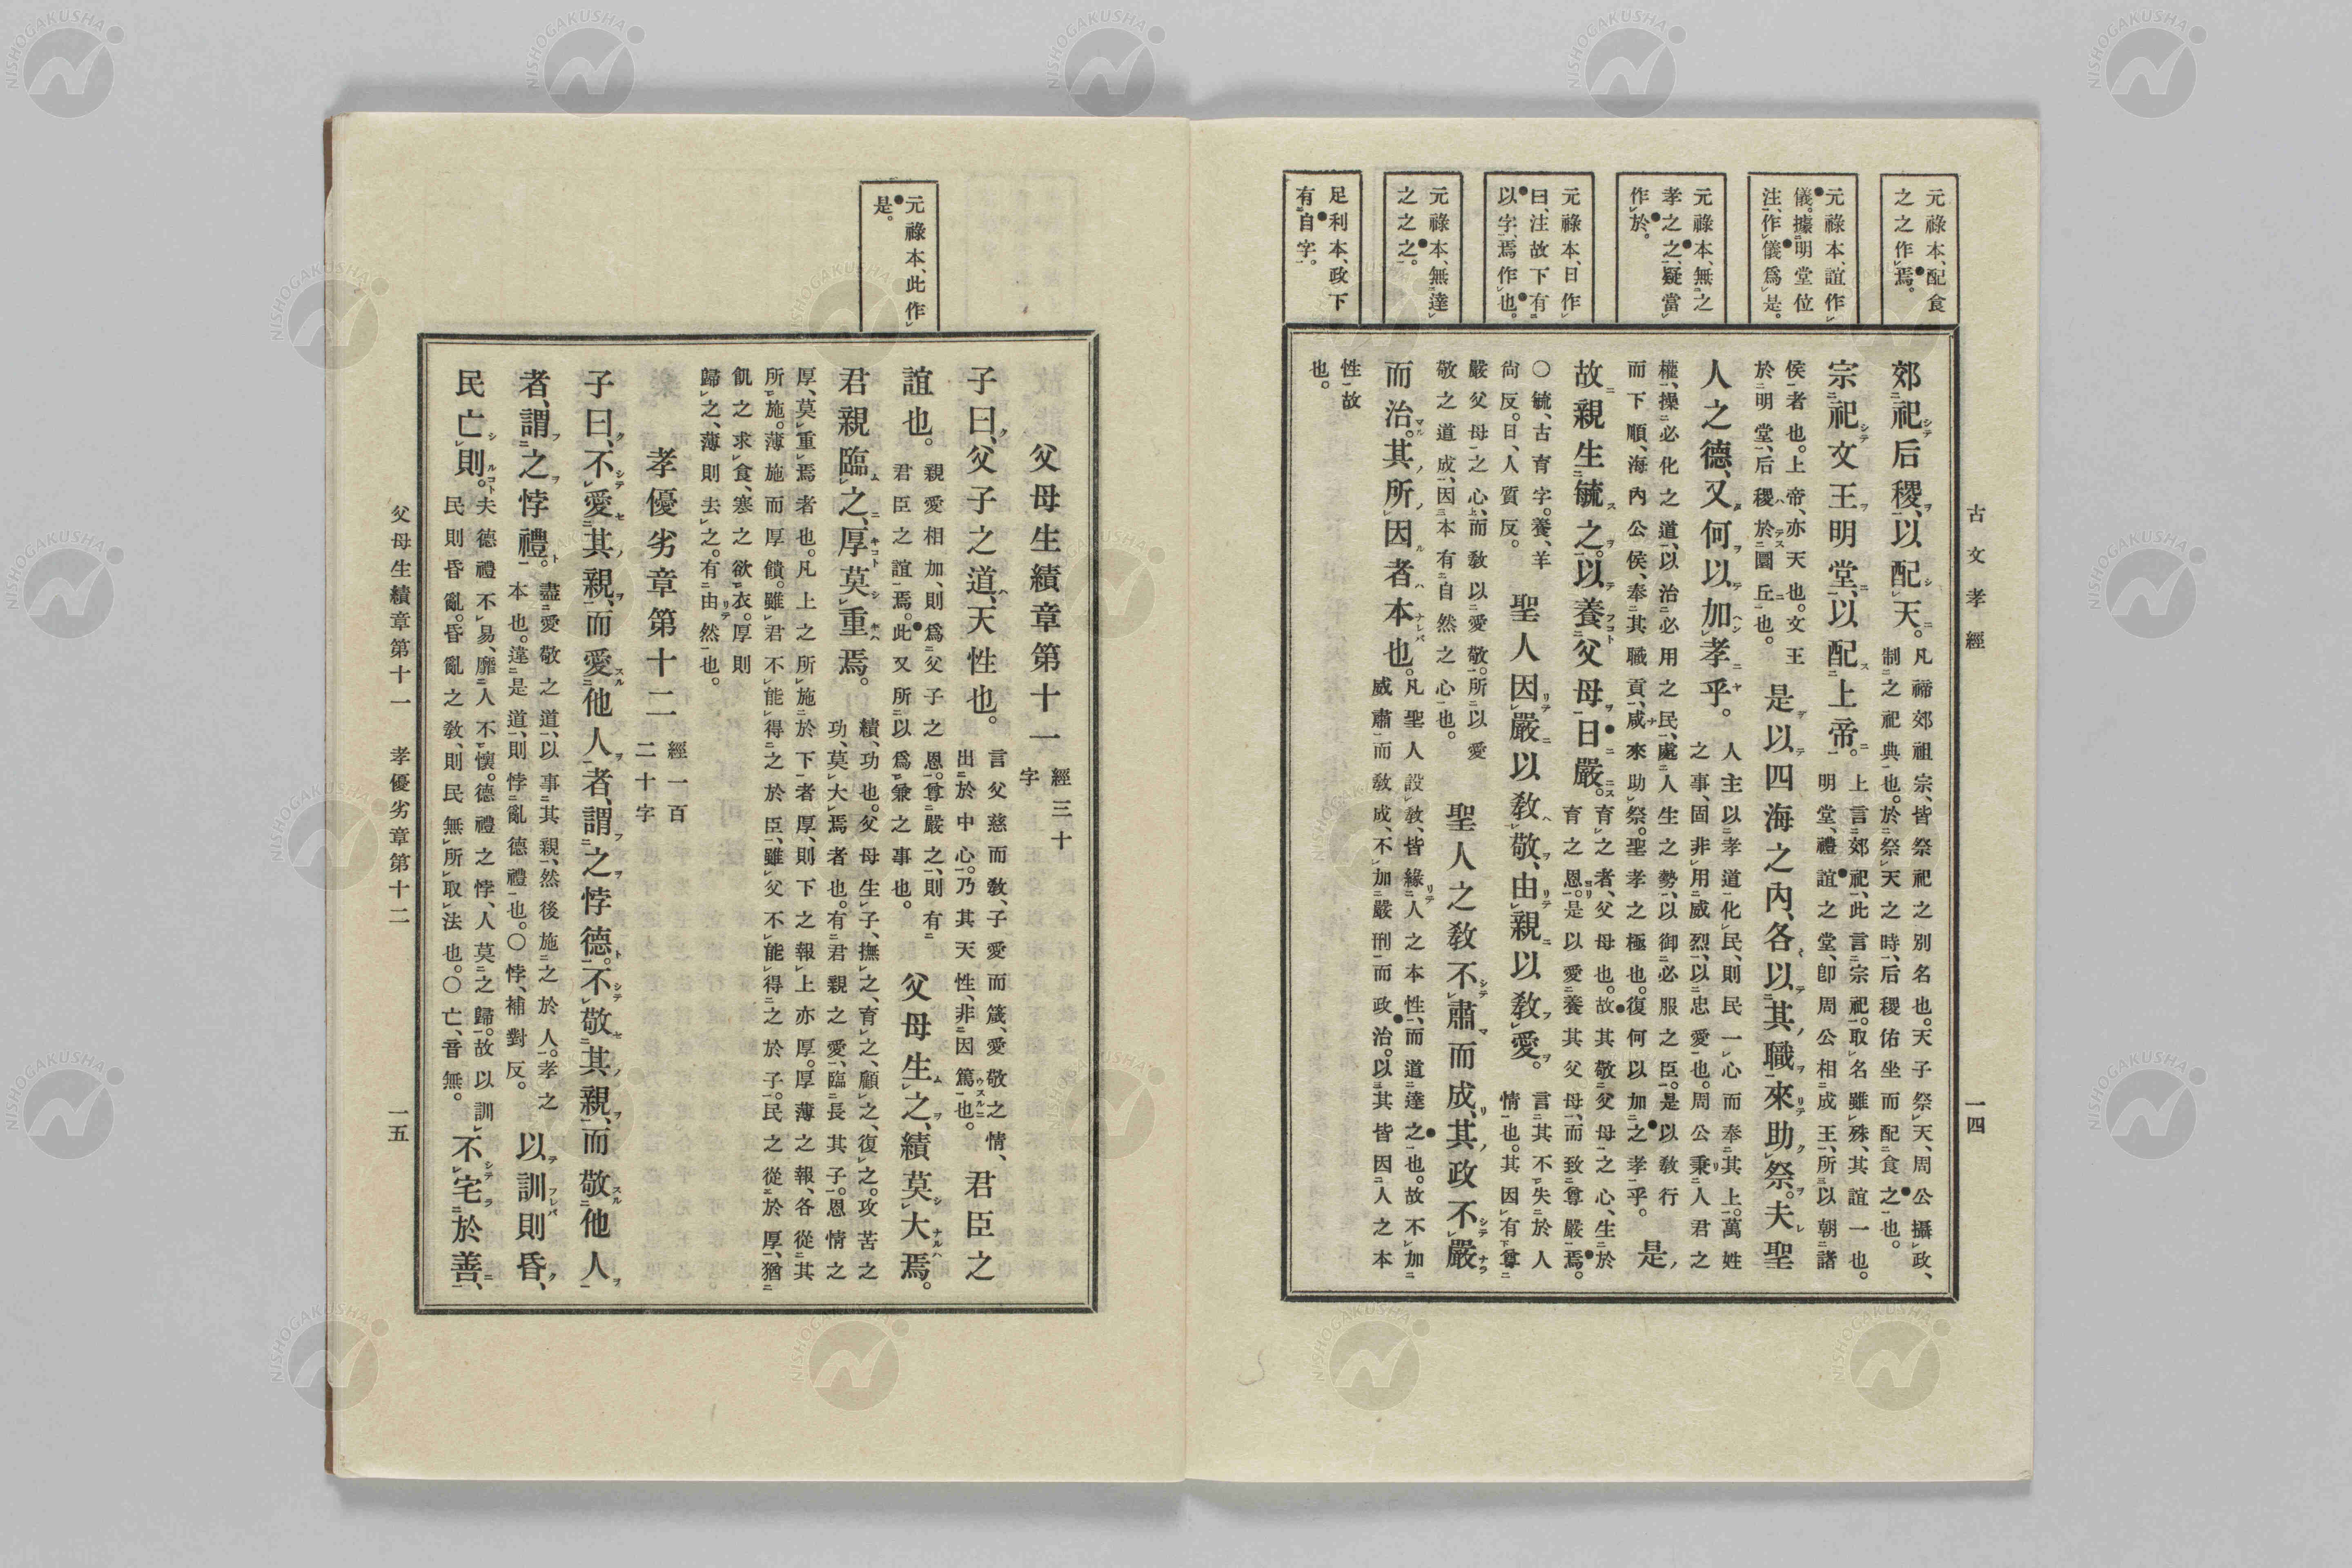 古文孝經
一四
元祿本、配食
之之作焉。
元祿本、誼作
儀。據明堂位
注、作儀爲是。
元祿本無之
孝之之、疑當
作於。
元祿本、日作
曰、注故下有
以字、焉作也。
元祿本、無達
之之之。
足利本、政下
有自字。
郊祀后稷、以配天。
凡禘郊祖宗、皆祭祀之別名也。天子祭天、周公攝政、
制之祀典也。於祭天之時、后稷佑坐而配食之也。
宗祀文王明堂、以配上帝。
上言郊祀、此言宗祀。取名雖殊、其誼一也。
明堂、禮誼之堂、卽周公相成王、所以朝諸
侯者也。上帝、亦天也。文王
於明堂、后稷於圜丘也。
是以四海之內、各以其職來助祭。夫聖
人之德、又何以加孝乎。
人主以孝道化民、則民一心而奉其上。萬姓
之事、固非用威烈、以忠愛也。周公秉人君之
權、操必化之道、以治必用之民、處人生之勢、以御必服之臣。是以敎行
而下順、海內公侯、奉其職貢、咸來助祭。聖孝之極也。復何以加之孝乎。
是
故親生毓之。以養父母日嚴。
育之者、父母也。故其敬父母之心、生於
育之恩。是以愛養其父母、而致尊嚴焉。
〇毓、古育字。養、羊
尙反。日、人質反。
聖人因嚴以敎敬、由親以敎愛。
言其不失於人
情也。其因有尊
嚴父母之心、而敎以愛敬。所以愛
敬之道成、因本有自然之心也。
聖人之敎不肅而成、其政不嚴
而治。其所因者本也。
凡聖人設敎、皆緣人之本性、而道達之也。故不加
威肅而敎成、不加嚴刑而政治。以其皆因人之本
性故
也。
元祿本、此作
是。
父母生績章第十一
經三十
字
子曰、父子之道、天性也。
言父慈而敎、子愛而箴、愛敬之情、
出於中心。乃其天性、非因篤也。
君臣之
誼也。
親愛相加、則爲父子之恩。尊嚴之、則有
君臣之誼焉。此又所以爲兼之事也。
父母生之、績莫大焉。
績、功也。父母生子、撫之、育之、顧之、復之。攻苦之
功、莫大焉者也。有君親之愛、臨長其子。恩情之
君親臨之、厚莫重焉。
厚、莫重焉者也。凡上之所施於下者厚、則下之報上亦厚。厚薄之報、各從其
所施。薄施而厚饋。雖君不能得之於臣、雖父不能得之於子。民之從於厚、猶
飢之求食、寒之欲衣。厚則
歸之、薄則去之。有由然也。
孝優劣章第十二
經一百
二十字
子曰、不愛其親、而愛他人者、謂之悖德。不敬其親、而敬他人
者、謂之悖禮。
盡愛敬之道、以事其親、然後施之於人。孝之
本也。違是道、則悖亂德禮也。〇悖、補對反。
以訓則昏、
民亡則。
夫德禮不易、靡人不懷。德禮之悖、人莫之歸。故以訓
民則昏亂。昏亂之敎、則民無所取法也。〇亡、音無。
不宅於善、
父母生績章第十一　孝優劣章第十二
一五